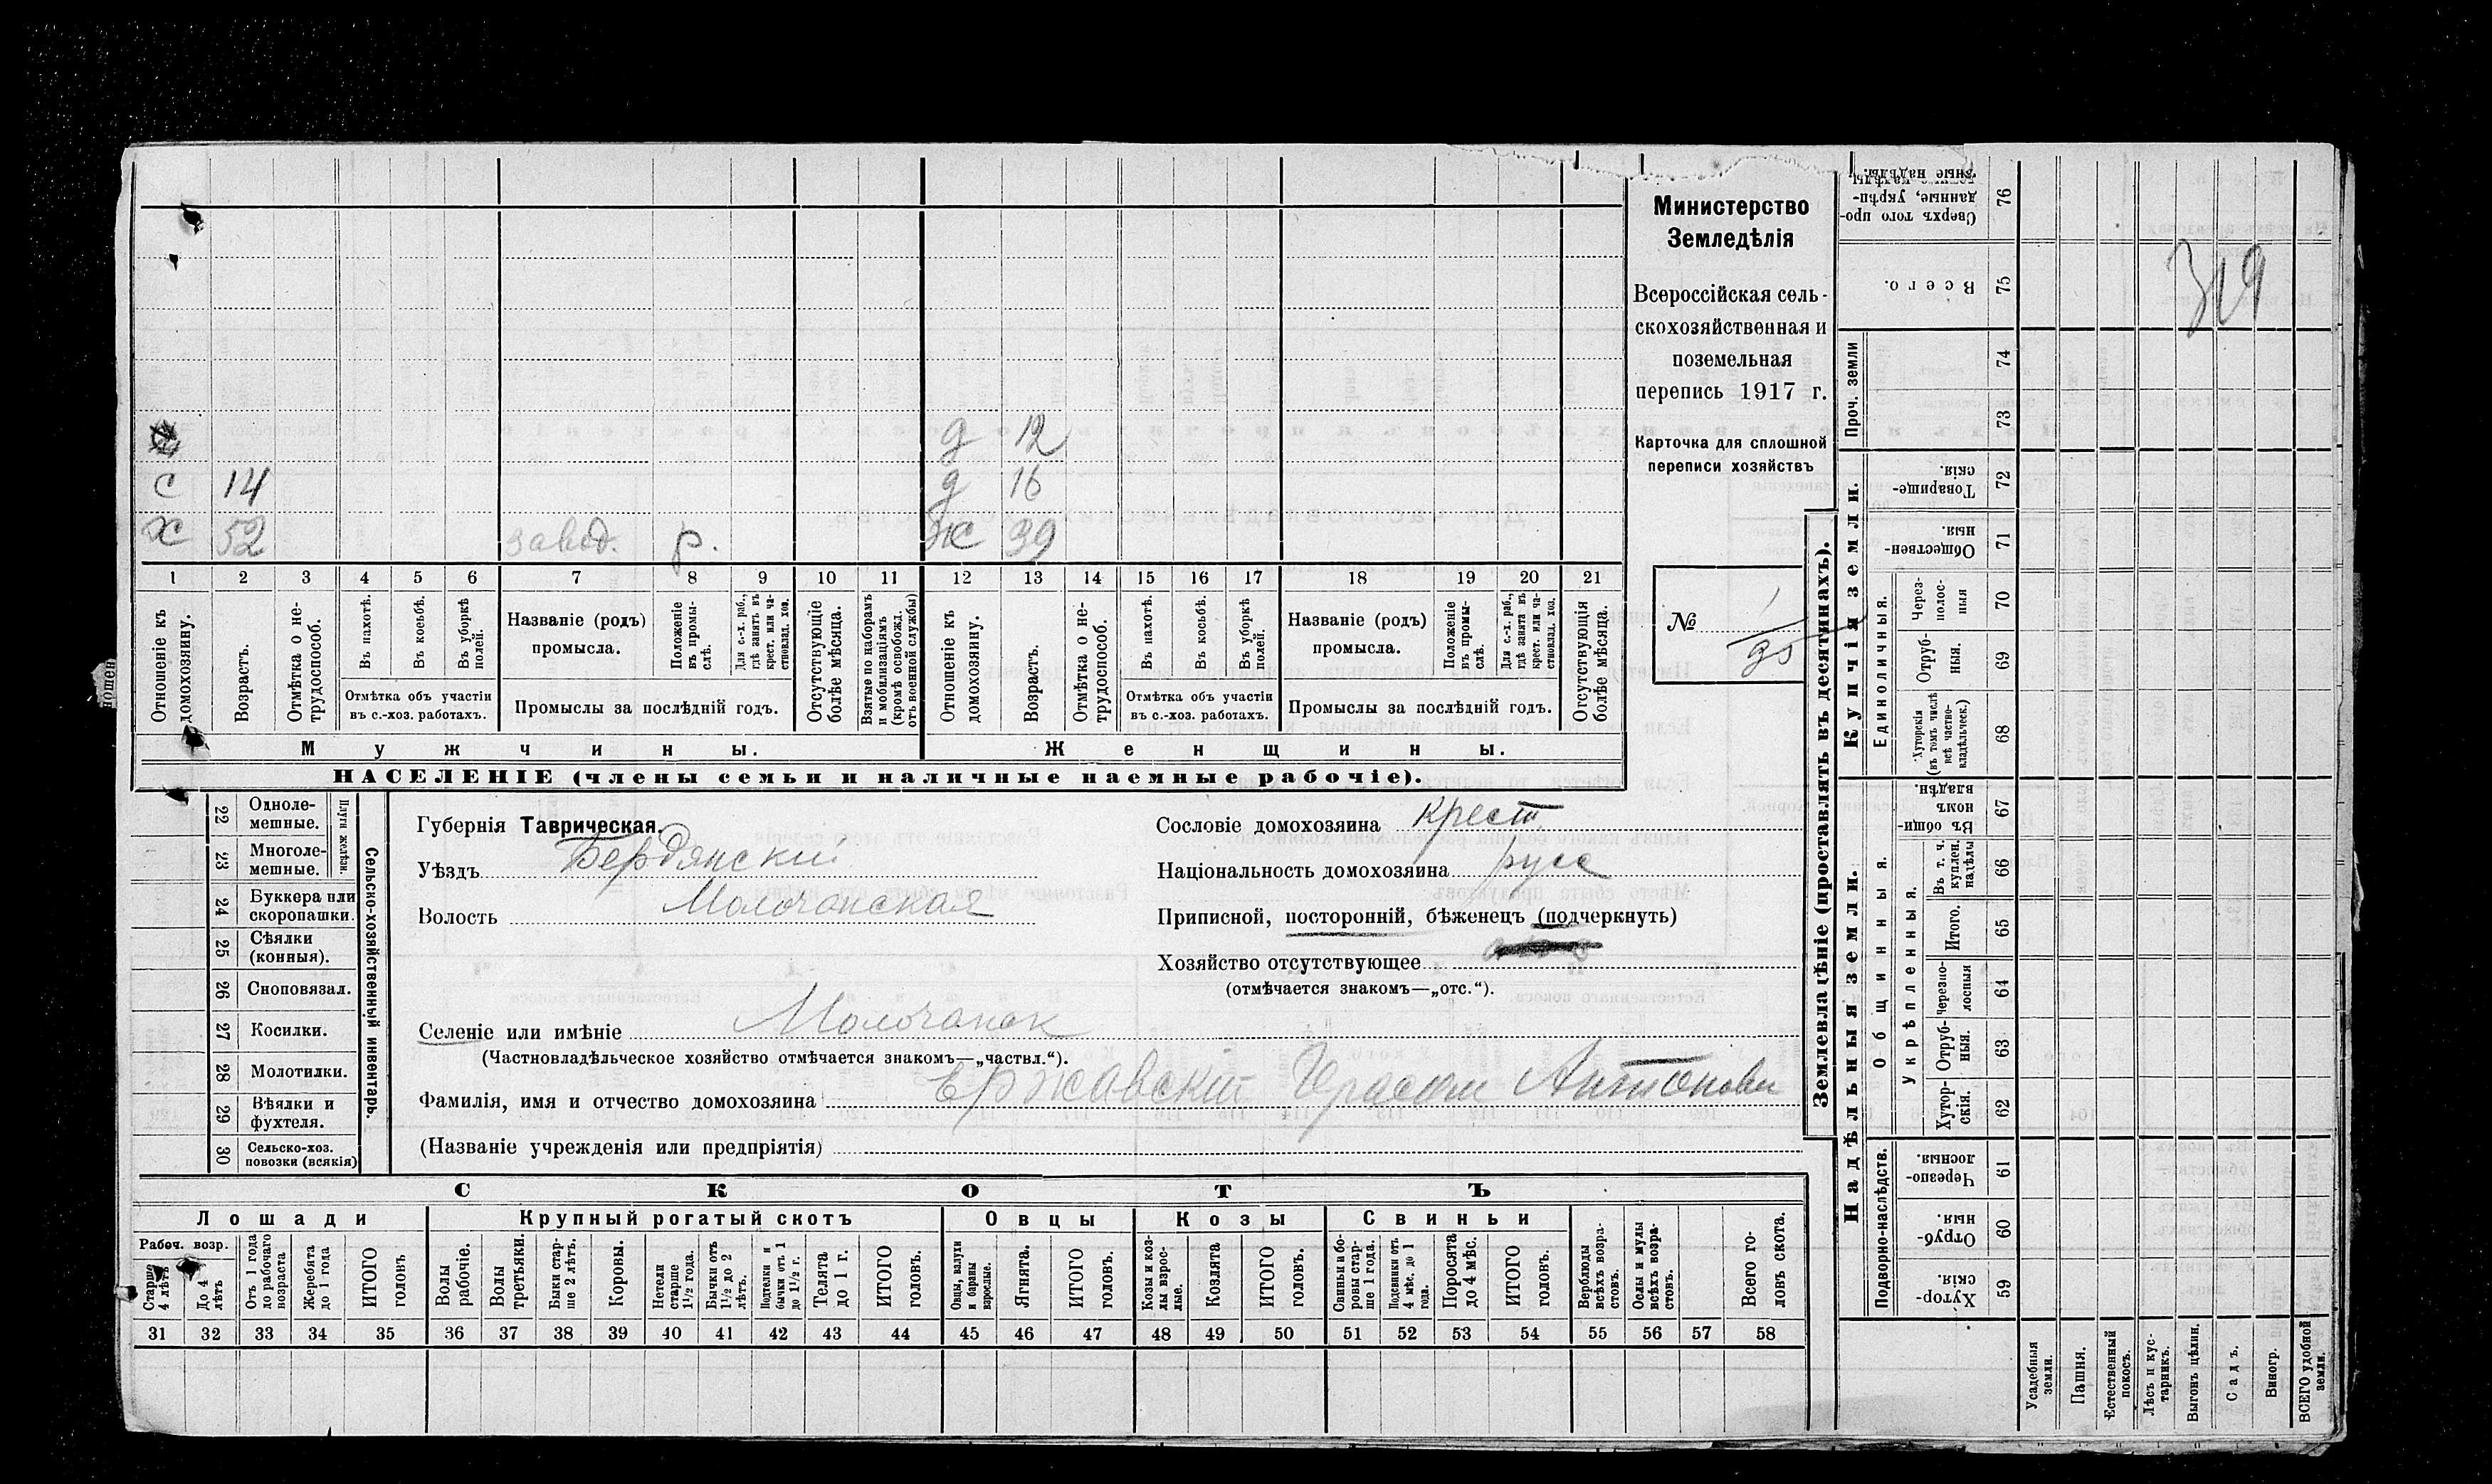 Министерство
Земледѣлія
Всероссійская сель-
скохозяйственная и
поземельная
перепись 1917 г.
Карточка для сплошной
переписи хозяйствъ
№ 1
319
д 12
с 14 д 16
х 52 завод. р. ж 39
1 2 3 4 5 6 7 8 9 10 11 12 13 14 15 16 17 18 19 20 21
Отношеніе къ домохозяину.
Возрастъ.
Отмѣтка о не-трудоспособ.
Въ пахотѣ.
Въ косьбѣ.
Въ уборкѣ полей.
Отмѣтка объ участіи
въ с.-хоз. работахъ.
Названіе (родъ)
промысла.
Положеніе въ промы-слѣ.
Для с.-х. раб., гдѣ занятъ въ крест. или ча-стновлад. хоз.
Промыслы за послѣдній годъ.
Отсутствующіе болѣе мѣсяца.
Взятые по наборамъ и мобилизаціямъ (кромѣ освобожд. отъ военной службы)
Отношеніе къ домохозяину.
Возрастъ.
Отмѣтка о не-трудоспособ.
Въ пахотѣ.
Въ косьбѣ.
Въ уборкѣ полей.
Отмѣтка объ участіи
въ с.-хоз. работахъ.
Названіе (родъ)
промысла.
Положеніе въ промы-слѣ.
Для с.-х. раб., гдѣ занята въ крест. или ча-стновлад. хоз.
Промыслы за послѣдній годъ.
Отсутствующіе болѣе мѣсяца.
Мужчины. Женщины.
НАСЕЛЕНІЕ (члены семьи и наличные наемные рабочіе).
Сельско-хозяйственный инвентарь.
Плуги желѣзн.
22 Одноле-
мешные.
23 Многоле-
мешные.
24 Буккера или
скоропашки.
25 Сѣялки
(конныя).
26 Сноповязал.
27 Косилки.
28 Молотилки.
29 Вѣялки и
фухтеля.
30 Сельско-хоз.
повозки (всякія)
Губернія Таврическая.
Уѣздъ Бердянскій
Волость Молочанская
Сословіе домохозяина крест
Національность домохозяина русс
Приписной, посторонній, бѣженецъ (подчеркнуть)
Хозяйство отсутствующее
(отмѣчается знакомъ—„отс.“).
Селеніе или имѣніе Молочанск
(Частновладѣльческое хозяйство отмѣчается знакомъ—„частвл.“).
Фамилія, имя и отчество домохозяина Ержавскій Антонови
(Названіе учрежденія или предпріятія)
СКОТЪ
Лошади Крупный рогатый скотъ Овцы Козы Свиньи
Рабоч. возр.
Старше 4 лѣтъ
До 4 лѣтъ
Отъ 1 года до рабочаго возраста
Жеребята до 1 года
ИТОГО головъ
Волы рабочіе.
Волы третьяки.
Быки стар-ше 2 лѣтъ.
Коровы.
Нетели старше 1½ года.
Бычки отъ 1½ до 2 лѣтъ.
Подтелки и бычки отъ 1 до 1½ г.
Телята до 1 г.
ИТОГО головъ.
Овцы, валухи и бараны взрослые.
Ягнята.
ИТОГО головъ.
Козы и коз-лы взрос-лые.
Козлята
ИТОГО головъ.
Свиньи и бо-ровы стар-ше 1 года.
Подсвинки отъ 4 мѣс. до 1 года.
Поросята до 4 мѣс.
ИТОГО головъ.
Верблюды всѣхъ возра-стовъ.
Ослы и мулы всѣхъ возра-стовъ.
Всего го-ловъ скота.
31 32 33 34 35 36 37 38 39 40 41 42 43 44 45 46 47 48 49 50 51 52 53 54 55 56 57 58
Землевладѣніе (проставлять въ десятинахъ).
Надѣльныя земли. Купчія земли.
Подворно-наслѣдств.
Общинныя.
Укрѣпленныя.
Единоличныя.
Проч. земли
59 Хутор-скія.
60 Отруб-ныя.
61 Черезпо-лосныя.
62 Хутор-скія.
63 Отруб-ныя.
64 Черезпо-лосныя
65 Итого.
66 Въ т. ч. куплен. надѣлы
67 Въ общи-номъ владѣн.
68 Хуторскія (въ томъ числѣ всѣ частно-владѣльческ.)
69 Отруб-ныя.
70 Через-полос-ныя
71 Обществен-ныя
72 Товарище-скія.
73
74
75 Всего.
76 Сверхъ того про-данные, укрѣп-
Усадебныя земли.
Пашня.
Естественный покосъ.
Лѣсъ и кус-тарникъ.
Выгонъ цѣлин.
Садъ.
Виногр.
ВСЕГО удобной земли.